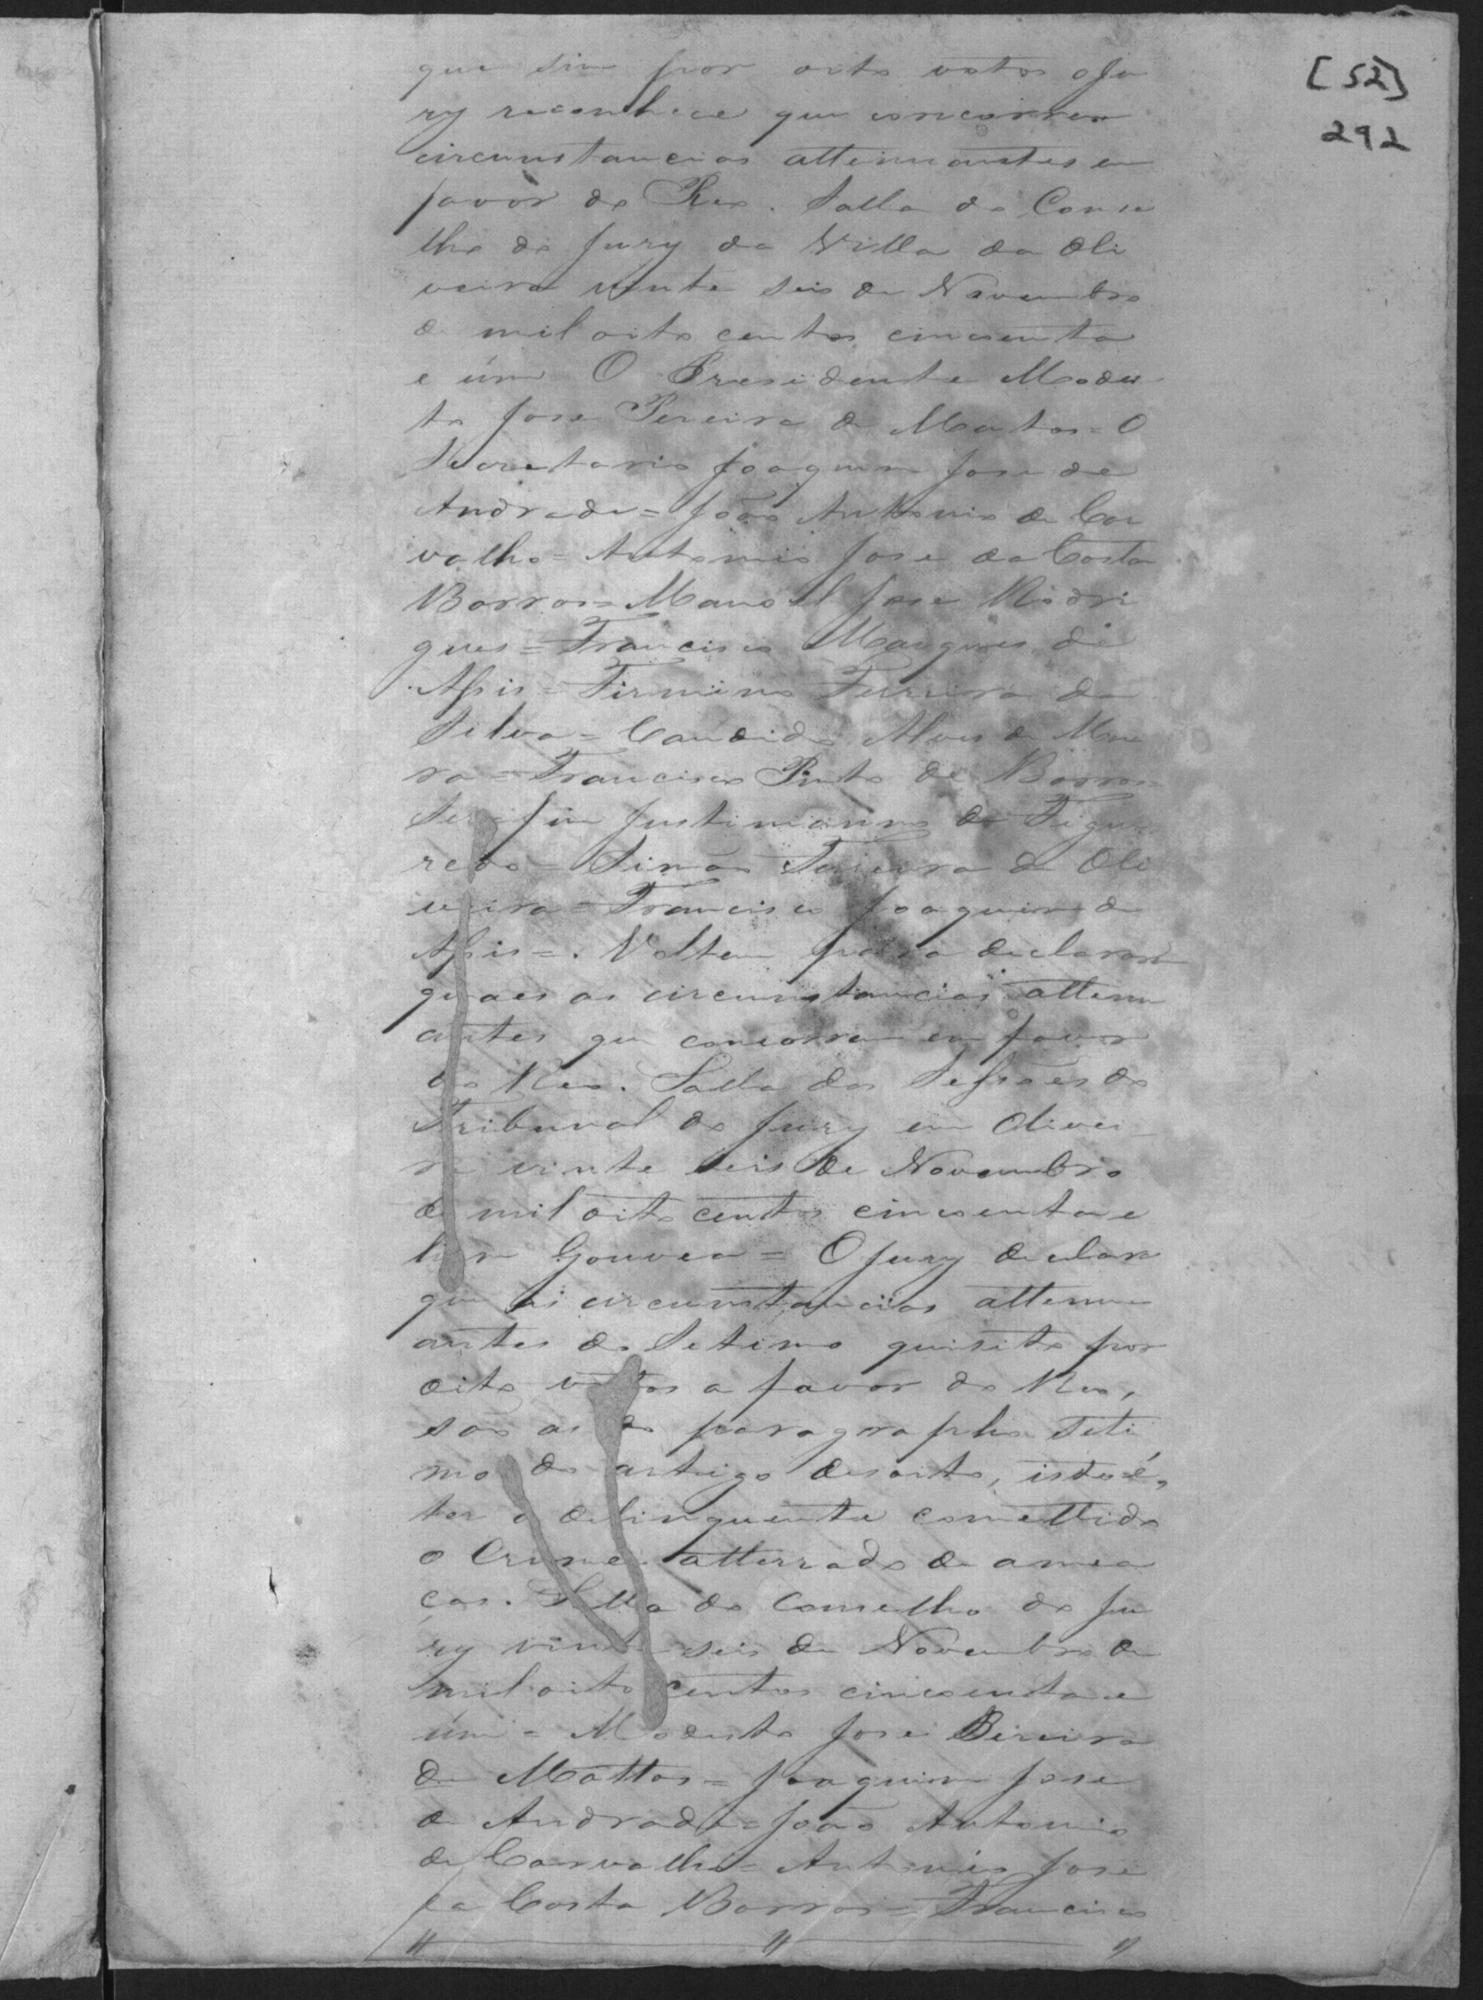 [52]
292
que sim por oito votos o Ju
ry reconhece que concorrem
circunstancias attenuantes em
favor do Reo. Salla do Conse
lho do Jury da Villa da Oli
veira vinte seis de Novembro
de mil oito centos cincoenta
e úm O Presidente Modes
to Jose Pereira de Mattos = O
Secretario Joaquim Jose de
Andrade = João Antonio de Car
valho = Antonio Jose da Costa
Barros = Manoel Jose Rodri
gues = Francisco Marques de
Assis = Firmino Ferreira da
Silva = Candido Alves de Mou
ra = Francisco Pinto de Barros =
Serafim Justiniano de Figue
redo = Simão Teixeira de Oli
veira = Francisco Joaquim de
Assis = . Voltem para declararem
quaes as circumstancias attenu
antes que concorrem em favor
do Reo. Salla das Sessões do
Tribunal do Jury em Olivei
ra vinte seis de Novembro
de mil oito centos cincoenta e
hum Gouvea = O Jury declara
que as circumstancias attenu
antes do Setimo quisito por
oito votos a favor do Reo,
são as do paragrapho Seti
mo do artigo desoito, isto é,
ter o delinquente comettido
o Crime atterrado de amea
ças. Salla do Conselho do Ju
ry vinte seis de Novembro de
mil oito centos cincoenta e
úm = Modesto Jose Pireira
de Mattos = Joaquim Jose
de Andrade = João Antonio
de Carvalho = Antonio Jose
da Costa Barros = Francisco